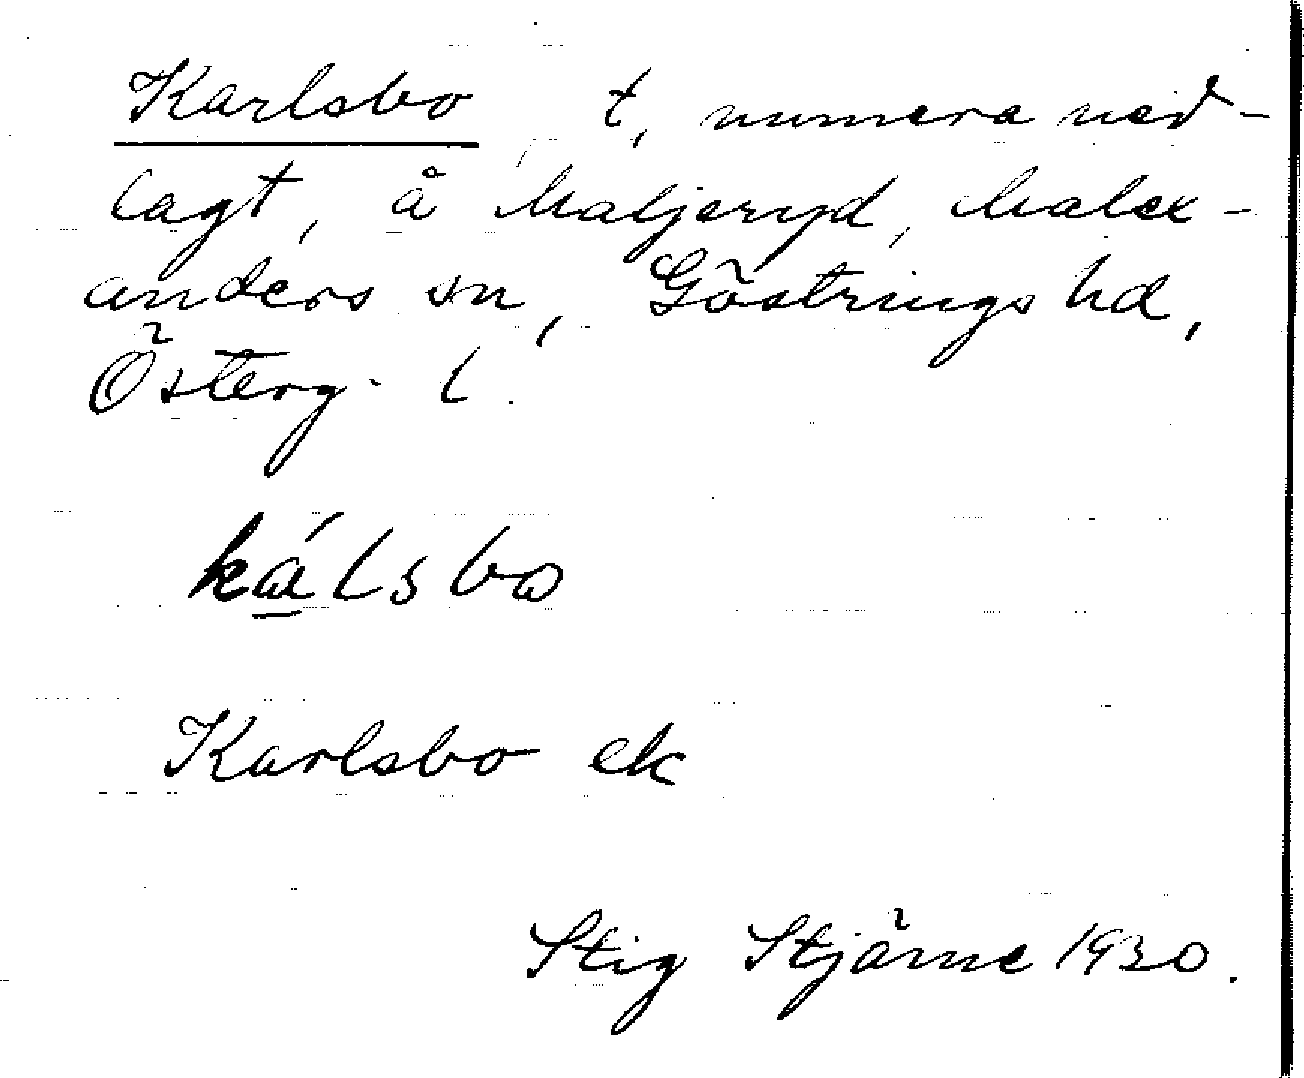 Karlsbo t, numera ned-
lagt, å Maljeryd, Malex-
anders sn, Göstrings hd,
Österg. l.
kálsbo
Karlsbo ek
Stig Stjärne 1930.